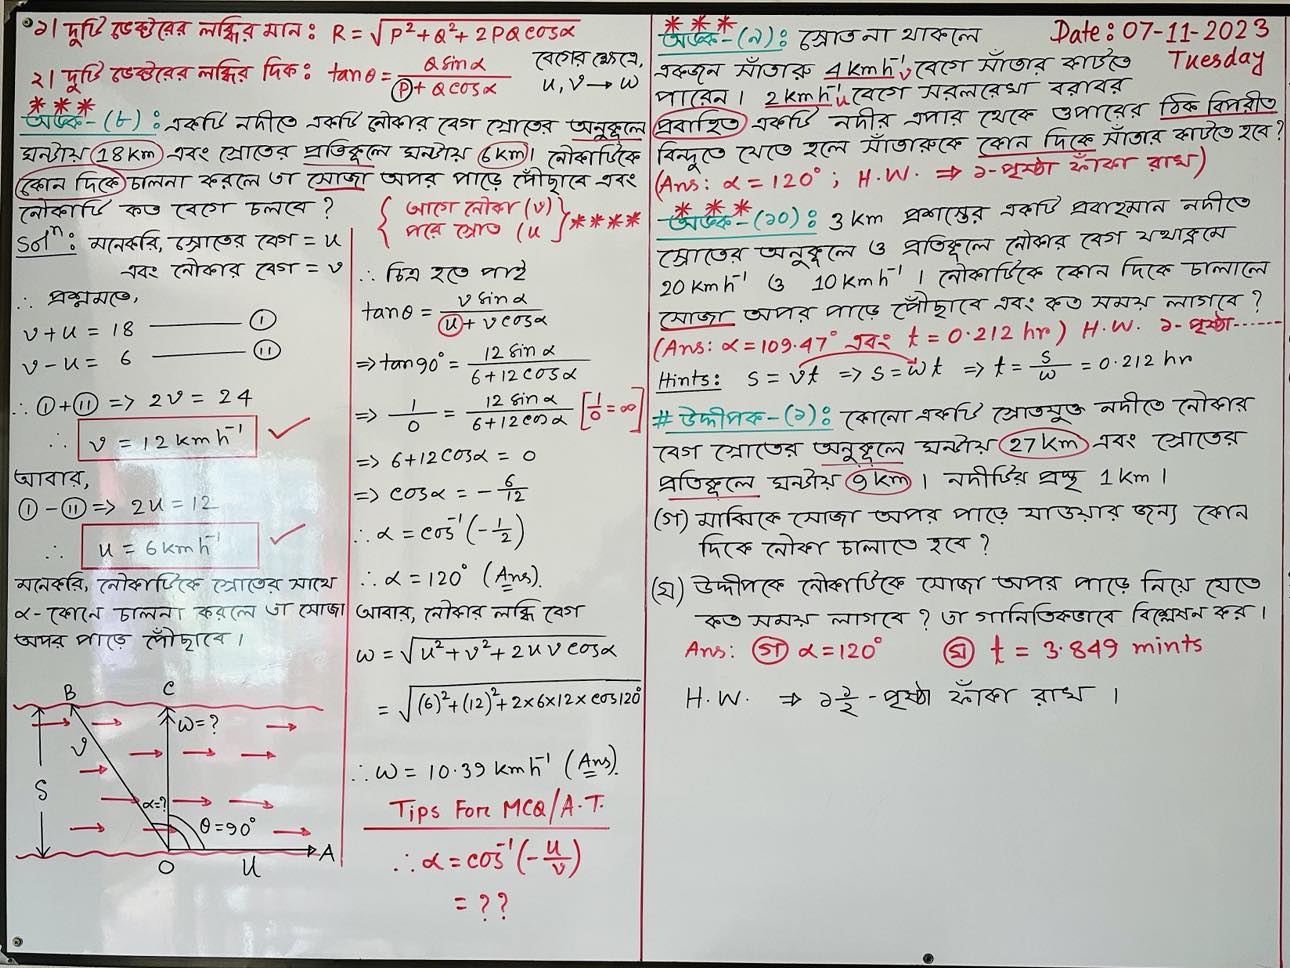 ১। দুটি ভেক্টরের লব্ধির মান: R = √P² + Q² + 2PQ cosα
২। দুটি ভেক্টরের লব্ধির দিক: tanθ = Q sinα / P + Q cosα
বেগের ক্ষেত্রে,
u, v → w
*** অংক-(৮): একটি নদীতে একটি নৌকার বেগ স্রোতের অনুকূলে
ঘন্টায় 18km এবং স্রোতের প্রতিকূলে ঘন্টায় 6km। নৌকাটিকে
কোন দিকে চালনা করলে তা সোজা অপর পাড়ে পৌঁছাবে এবং
নৌকাটি কত বেগে চলবে ?
{ আগে নৌকা (v)
পরে স্রোত (u) } ****
Solⁿ: মনেকরি, স্রোতের বেগ = u
এবং নৌকার বেগ = v
∴ প্রশ্নমতে,
v + u = 18 ——— (i)
v - u = 6 ——— (ii)
∴ (i) + (ii) => 2v = 24
∴ v = 12 kmh⁻¹ ✓
আবার,
(i) - (ii) => 2u = 12
∴ u = 6 kmh⁻¹ ✓
মনেকরি, নৌকাটিকে স্রোতের সাথে
α- কোনে চালনা করলে তা সোজা
অপর পাড়ে পৌঁছাবে।
B C
w = ?
v
S
α=?
θ = 90°
O u A
∴ চিত্র হতে পাই
tanθ = v sinα / u + v cosα
=> tan90° = 12 sinα / 6 + 12 cosα
=> 1/0 = 12 sinα / 6 + 12 cosα [1/0 = ∞]
=> 6 + 12 cosα = 0
=> cosα = - 6/12
∴ α = cos⁻¹(- 1/2)
∴ α = 120° (Ans).
আবার, নৌকার লব্ধি বেগ
w = √u² + v² + 2uv cosα
= √(6)² + (12)² + 2×6×12×cos120°
∴ w = 10.39 kmh⁻¹ (Ans).
Tips For MCQ/A.T.
∴ α = cos⁻¹(- u/v)
= ??
Date: 07-11-2023
Tuesday
*** অংক-(৯): স্রোত না থাকলে
একজন সাঁতারু 4 kmh⁻¹ v বেগে সাঁতার কাটতে
পারেন। 2 kmh⁻¹ u বেগে সরলরেখা বরাবর
প্রবাহিত একটি নদীর এপার থেকে ওপারের ঠিক বিপরীত
বিন্দুতে যেতে হলে সাঁতারুকে কোন দিকে সাঁতার কাটতে হবে?
(Ans: α = 120° ; H.W. ⇒ ১-পৃষ্ঠা ফাঁকা রাখ)
*** অংক-(১০): 3 km প্রশস্তের একটি প্রবাহমান নদীতে
স্রোতের অনুকূলে ও প্রতিকূলে নৌকার বেগ যথাক্রমে
20 kmh⁻¹ ও 10 kmh⁻¹ । নৌকাটিকে কোন দিকে চালালে
সোজা অপর পাড়ে পৌঁছাবে এবং কত সময় লাগবে ?
(Ans: α = 109.47° এবং t = 0.212 hr) H.W. ১-পৃষ্ঠা------
Hints: s = vt => s = wt => t = s/w = 0.212 hr
# উদ্দীপক-(১): কোনো একটি স্রোতযুক্ত নদীতে নৌকার
বেগ স্রোতের অনুকূলে ঘন্টায় 27km এবং স্রোতের
প্রতিকূলে ঘন্টায় 9km। নদীটির প্রস্থ 1 km।
(গ) মাঝিকে সোজা অপর পাড়ে যাওয়ার জন্য কোন
দিকে নৌকা চালাতে হবে ?
(ঘ) উদ্দীপকে নৌকাটিকে সোজা অপর পাড়ে নিয়ে যেতে
কত সময় লাগবে ? তা গানিতিকভাবে বিশ্লেষন কর।
Ans: (গ) α = 120° (ঘ) t = 3.849 mints
H.W. ⇒ ১ ১/২ - পৃষ্ঠা ফাঁকা রাখ ।